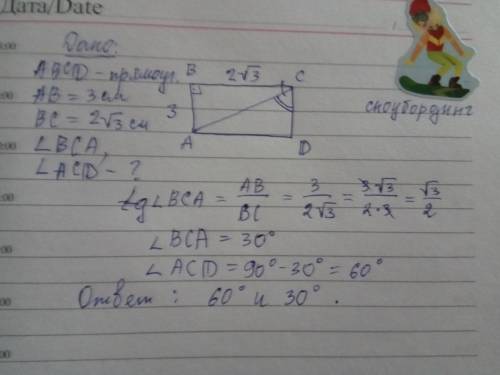 Дата/Date
Дано:
ABCD - прямоуг.
AB = 3 см
BC = 2√3 см
∠BCA,
∠ACD - ?
B 2√3 C
3
A D
сноубординг
tg∠BCA = AB/BC = 3/2√3 = 3√3/2·3 = √3/2
∠BCA = 30°
∠ACD = 90° - 30° = 60°
Ответ: 60° и 30°.